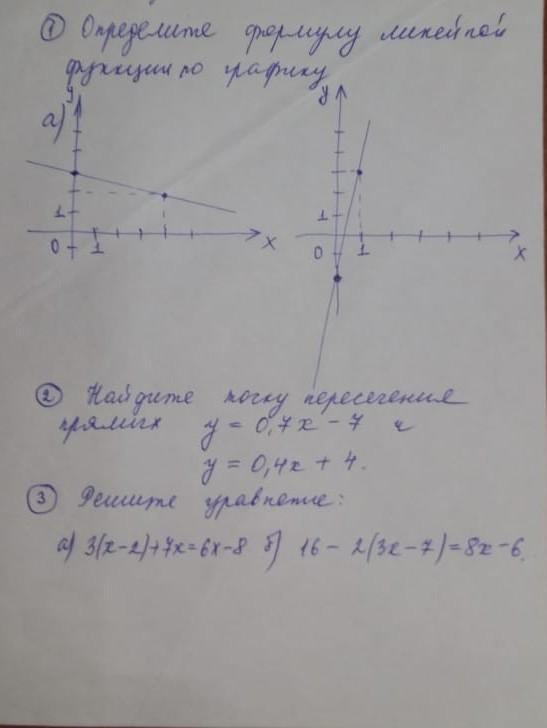 ① Определите формулу линейной
функции по графику
а) y
1
0 1 x
y
1
0 1 x
② Найдите точку пересечения
прямых y = 0,7x - 7 и
y = 0,4x + 4.
③ Решите уравнение:
а) 3(x-2)+7x=6x-8 б) 16 - 2(3x-7)=8x-6.